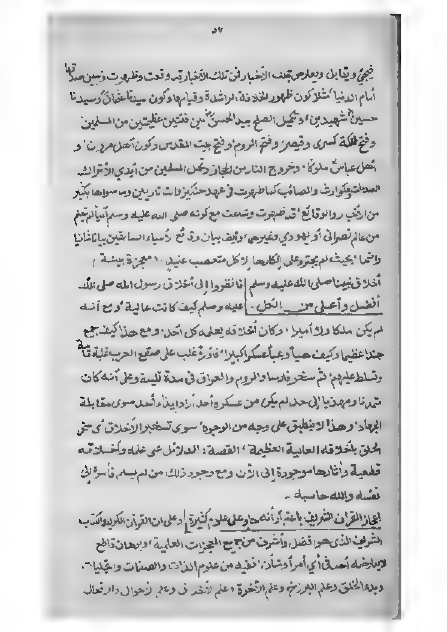 ٥٣
فيجيء ويقابل ويعارض بتلك الأخبار فإن تلك الأخبار قد وقعت وظهرت وتبين صدقها
أمام الدنيا مثلا كون ظهور الخلافة الراشدة وقيامها وكون سيدنا عثمان وسيدنا
حسين شهيدين وتكميل الصلح بيد الحسن بين فئتين عظيمتين من المسلمين
وفتح مملكة كسرى وقيصر وفتح الروم وفتح بيت المقدس وكون أهل مروان و
أهل عباس ملوكا وخروج النار من الحجاز وتحمل المسلمين من أيدي الأتراك
الصدمات والكوارث والمصائب كما ظهرت في عهد جنكيز وما سواها بكثير
من الأخبار والوقائع قد ظهرت وشاعت مع كونه صلى الله عليه وسلم أميا لم يتعلم
من عالم نصراني أو يهودي وغيرهم وأيضا بيان وقائع الأنبياء السابقين بيانا شافيا
واضحا بحيث لم يجترء على إنكارها إلا كل متعصب عنيد معجزة بينة
أخلاق نبينا صلى الله عليه وسلم فانظروا إلى أخلاق رسول الله صلى الله
أفضل وأعلى من الكل عليه وسلم كيف كانت عالية ومع أنه
لم يكن ملكا ولا أميرا وكان أخلاقه يعلمه كل أحد ومع هذا كيف جمع
جندا عظيما وكيف هيأ وعبأ عسكرا كبيرا فأورد غلب على صقع العرب غلبة تامة
وتسلط عليهم ثم سخر فارسا والروم والعراق في مدة قليلة وعلى أنه كان
إلى حد لم يكن من عسكره أحد أراد إيذاء أحد سوى مقابلة
الجهاد وهذا لا ينطبق على وجه من الوجوه سوى تسخير الأخلاق أي سخر
الخلق بأخلاقه العالية العظيمة القصة الدلائل على علمه وأخلاقه
قطعية وآثارها موجودة إلى الآن ومع وجود ذلك من لم يسلم فأمره إلى
نفسه والله حاسبه
إعجاز القرآن الشريف باعتبار أنه حاو على علوم كثيرة وعلى أن القرآن
الشريف الذي هو أفضل وأشرف من جميع المعجزات العالية وبرهان قاطع
لا يعارضه أحد في أي أمر وشأن ففيه من علوم الذات والصفات والتجليات
وبدء الخلق وعلم البرزخ وعلم الآخرة وعلم الأخلاق وعلم الأحوال والأفعال